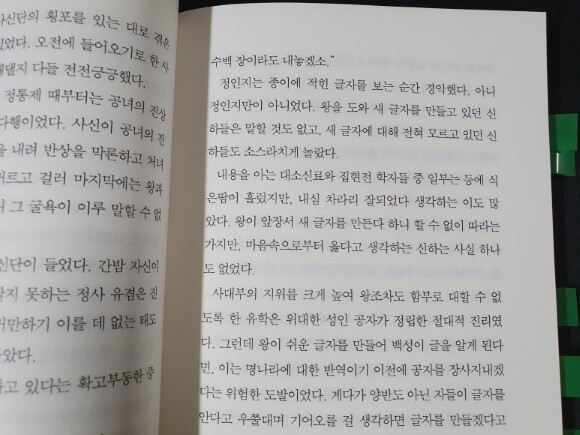 사신단의 횡포를 있는 대로 겪은
있었다. 오전에 들어오기로 한 사
댈지 다들 전전긍긍했다.
정통제 때부터는 공녀의 진상
다행이었다. 사신이 공녀의 진
을 내려 반상을 막론하고 처녀
르고 걸러 마지막에는 왕과
그 굴욕이 이루 말할 수 없
신단이 들었다. 간밤 자신이
지 못하는 정사 유겸은 진
만하기 이를 데 없는 태도
았다.
고 있다는 확고부동한 증
수백 장이라도 내놓겠소."
정인지는 종이에 적힌 글자를 보는 순간 경악했다. 아니
정인지만이 아니었다. 왕을 도와 새 글자를 만들고 있던 신
하들은 말할 것도 없고, 새 글자에 대해 전혀 모르고 있던 신
하들도 소스라치게 놀랐다.
내용을 아는 대소신료와 집현전 학자들 중 일부는 등에 식
은땀이 흘렀지만, 내심 차라리 잘되었다 생각하는 이도 많
았다. 왕이 앞장서 새 글자를 만든다 하니 할 수 없이 따라는
가지만, 마음속으로부터 옳다고 생각하는 신하는 사실 하나
도 없었다.
사대부의 지위를 크게 높여 왕조차도 함부로 대할 수 없
도록 한 유학은 위대한 성인 공자가 정립한 절대적 진리였
다. 그런데 왕이 쉬운 글자를 만들어 백성이 글을 알게 된다
면, 이는 명나라에 대한 반역이기 이전에 공자를 장사지내겠
다는 위험한 도발이었다. 게다가 양반도 아닌 자들이 글자를
안다고 우쭐대며 기어오를 걸 생각하면 글자를 만들겠다고